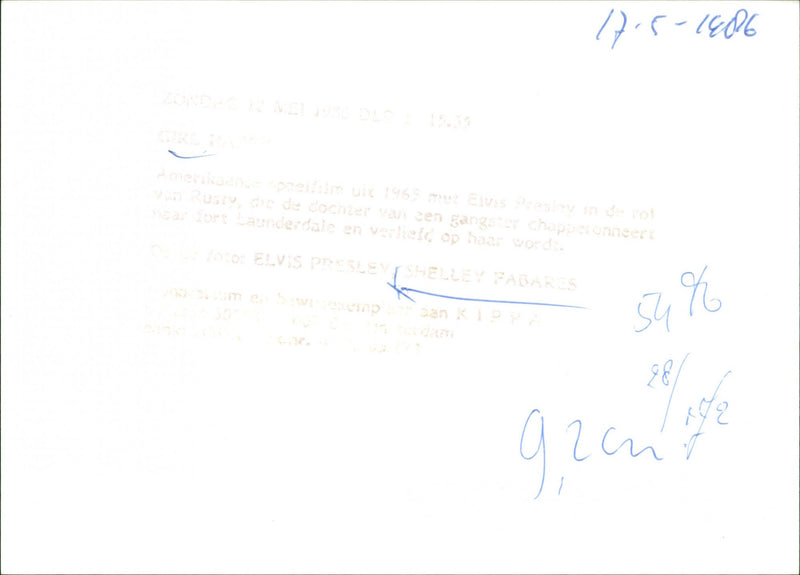 17-5-1986
ZONDAG MEI 15.55
GIRL HAPPY
Amerikaanse speelfilm uit 1965 met Elvis Presley in de rol
van Rusty, die de dochter van een gangster chapperonneert
naar fort Launderdale en verliefd op haar wordt.
Op de foto: ELVIS PRESLEY/SHELLEY FABARES
Honorarium en bewijsexemplaar aan K I P P A
54 %
28/
9,2 cm